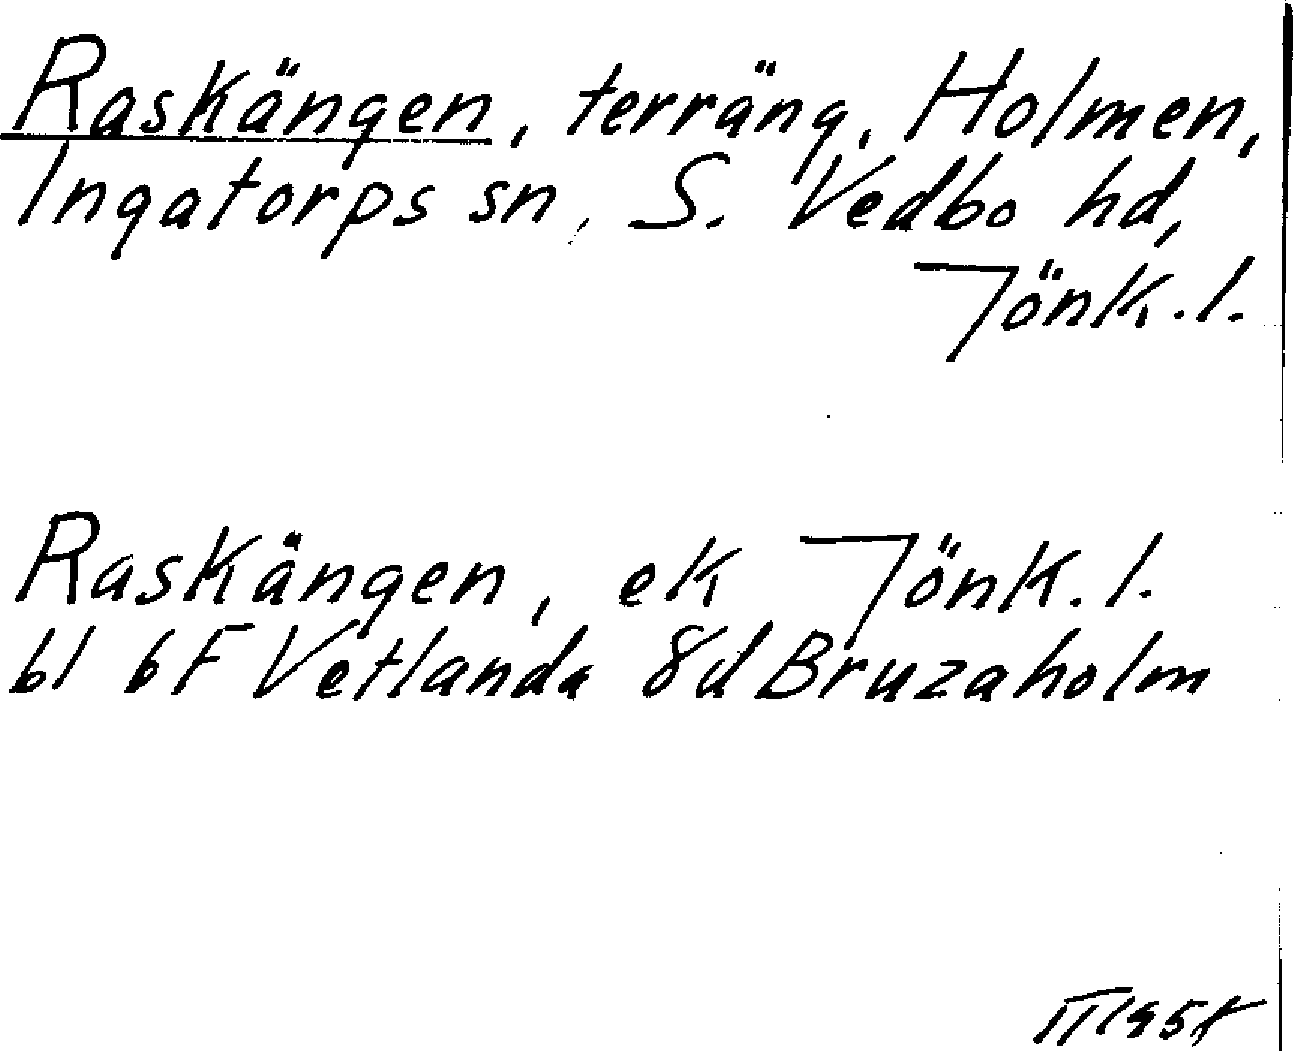 Raskängen, terräng, Holmen,
Ingatorps sn, S. Vedbo hd,
Jönk. l.
Raskängen, ek Jönk. l.
bl 6F Vetlanda 8d Bruzaholm